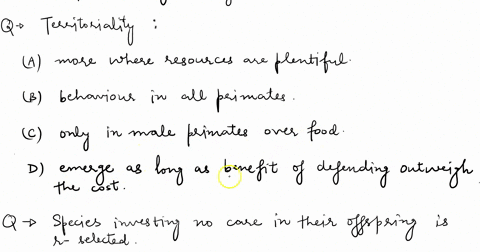 Q→ Territoriality :
(A) more where resources are plentiful.
(B) behaviour in all primates.
(C) only in male primates over food.
D) emerge as long as benefit of defending outweigh
the cost.
Q→ Species investing no care in their offspring is
r-selected.